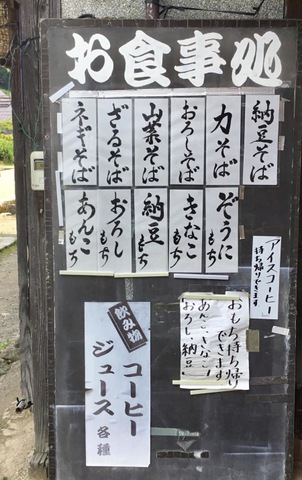 お食事処
納豆そば
力そば
おろしそば
山菜そば
ざるそば
ネギそば
ぞうに
もち
きなこ
もち
納豆
もち
おろし
もち
あんこ
もち
アイスコーヒー
持ち帰りできます
おもち持ち帰り
できます
あんこ、きなこ
おろし、納豆
飲み物
コーヒー
ジュース 各種